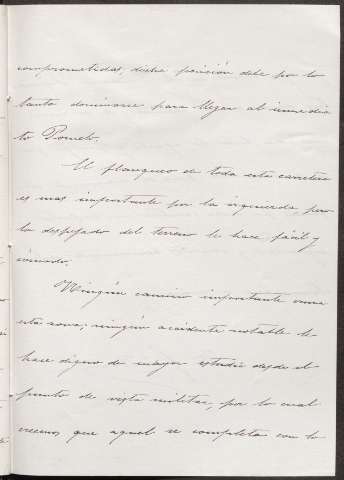 comprometidas, dicha posición debe por lo
tanto dominarse para llegar al inmedia
to Pomelo.
El flanqueo de toda esta carretera
es mas importante por la izquierda, pero
lo despejado del terreno le hace fácil y
cómodo.
Ningún camino importante
esta zona; ningún accidente notable le
hace digno de mayor estudio desde el
punto de vista militar, por lo cual
creemos que aquel se completa con lo